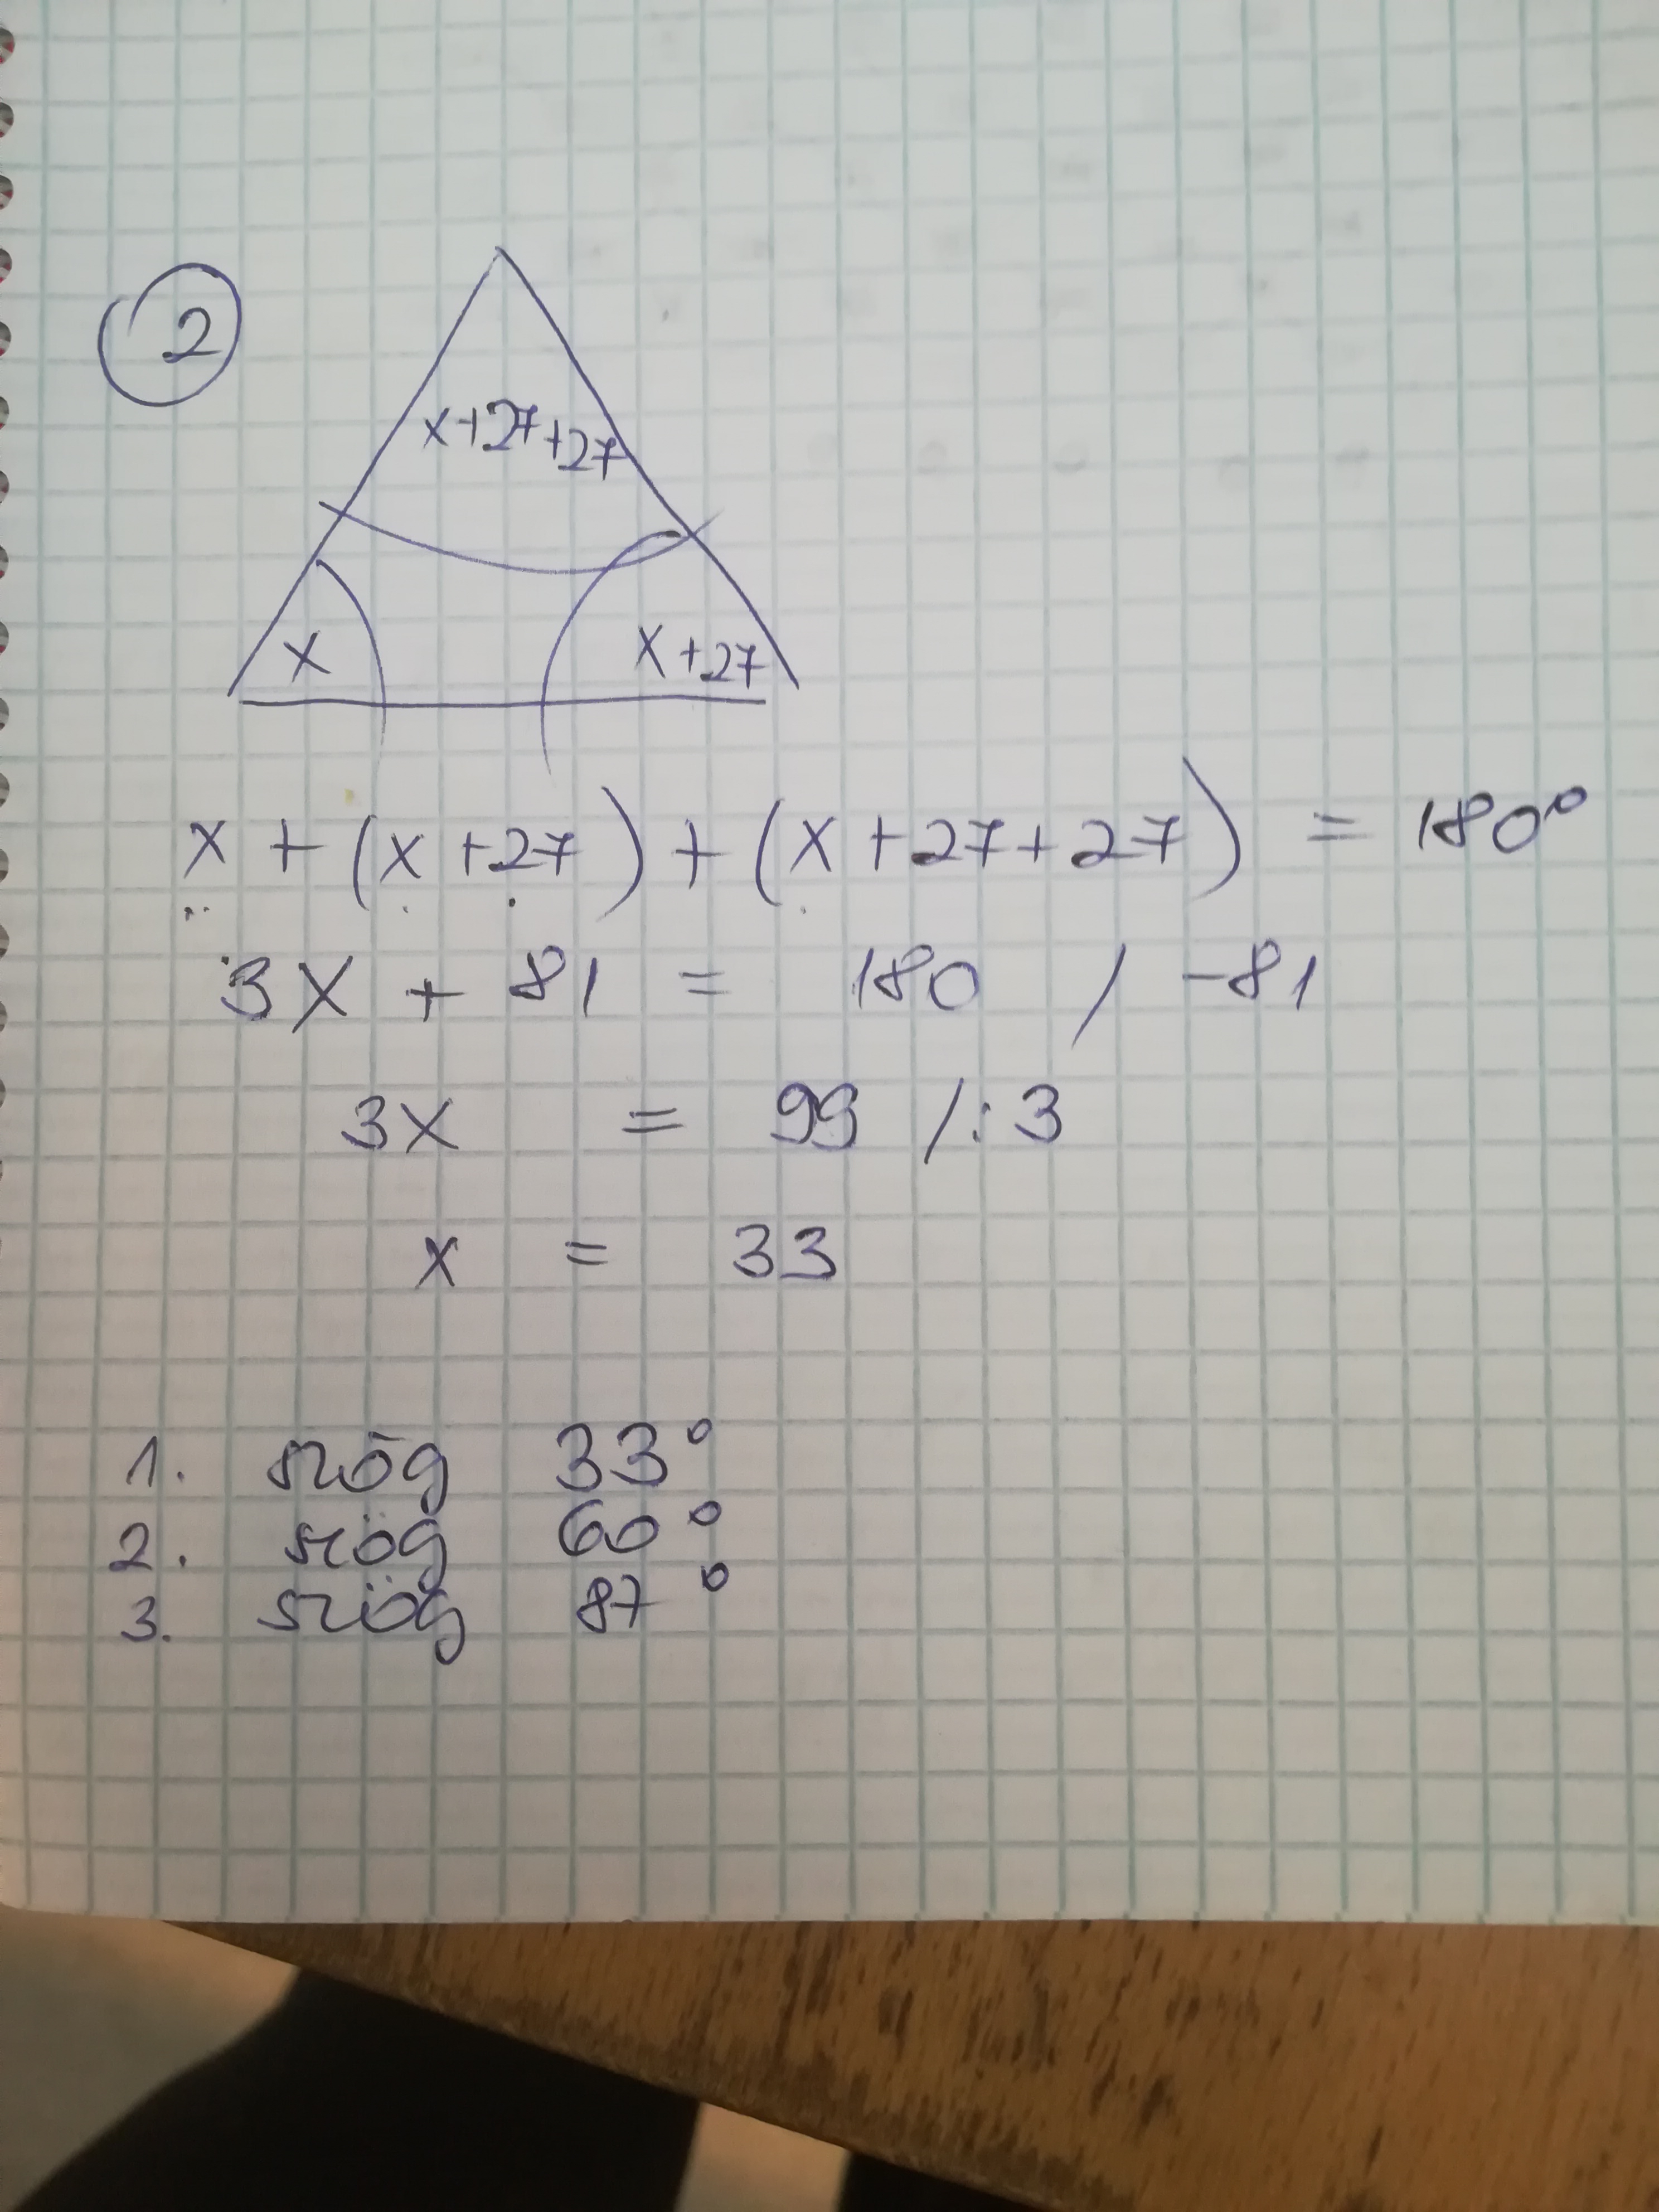 2
x+27+27
x
x+27
x + (x +27) + (x +27+27) = 180°
3x + 81 = 180 / -81
3x = 99 /:3
x = 33
1. szög 33°
2. szög 60°
3. szög 87°